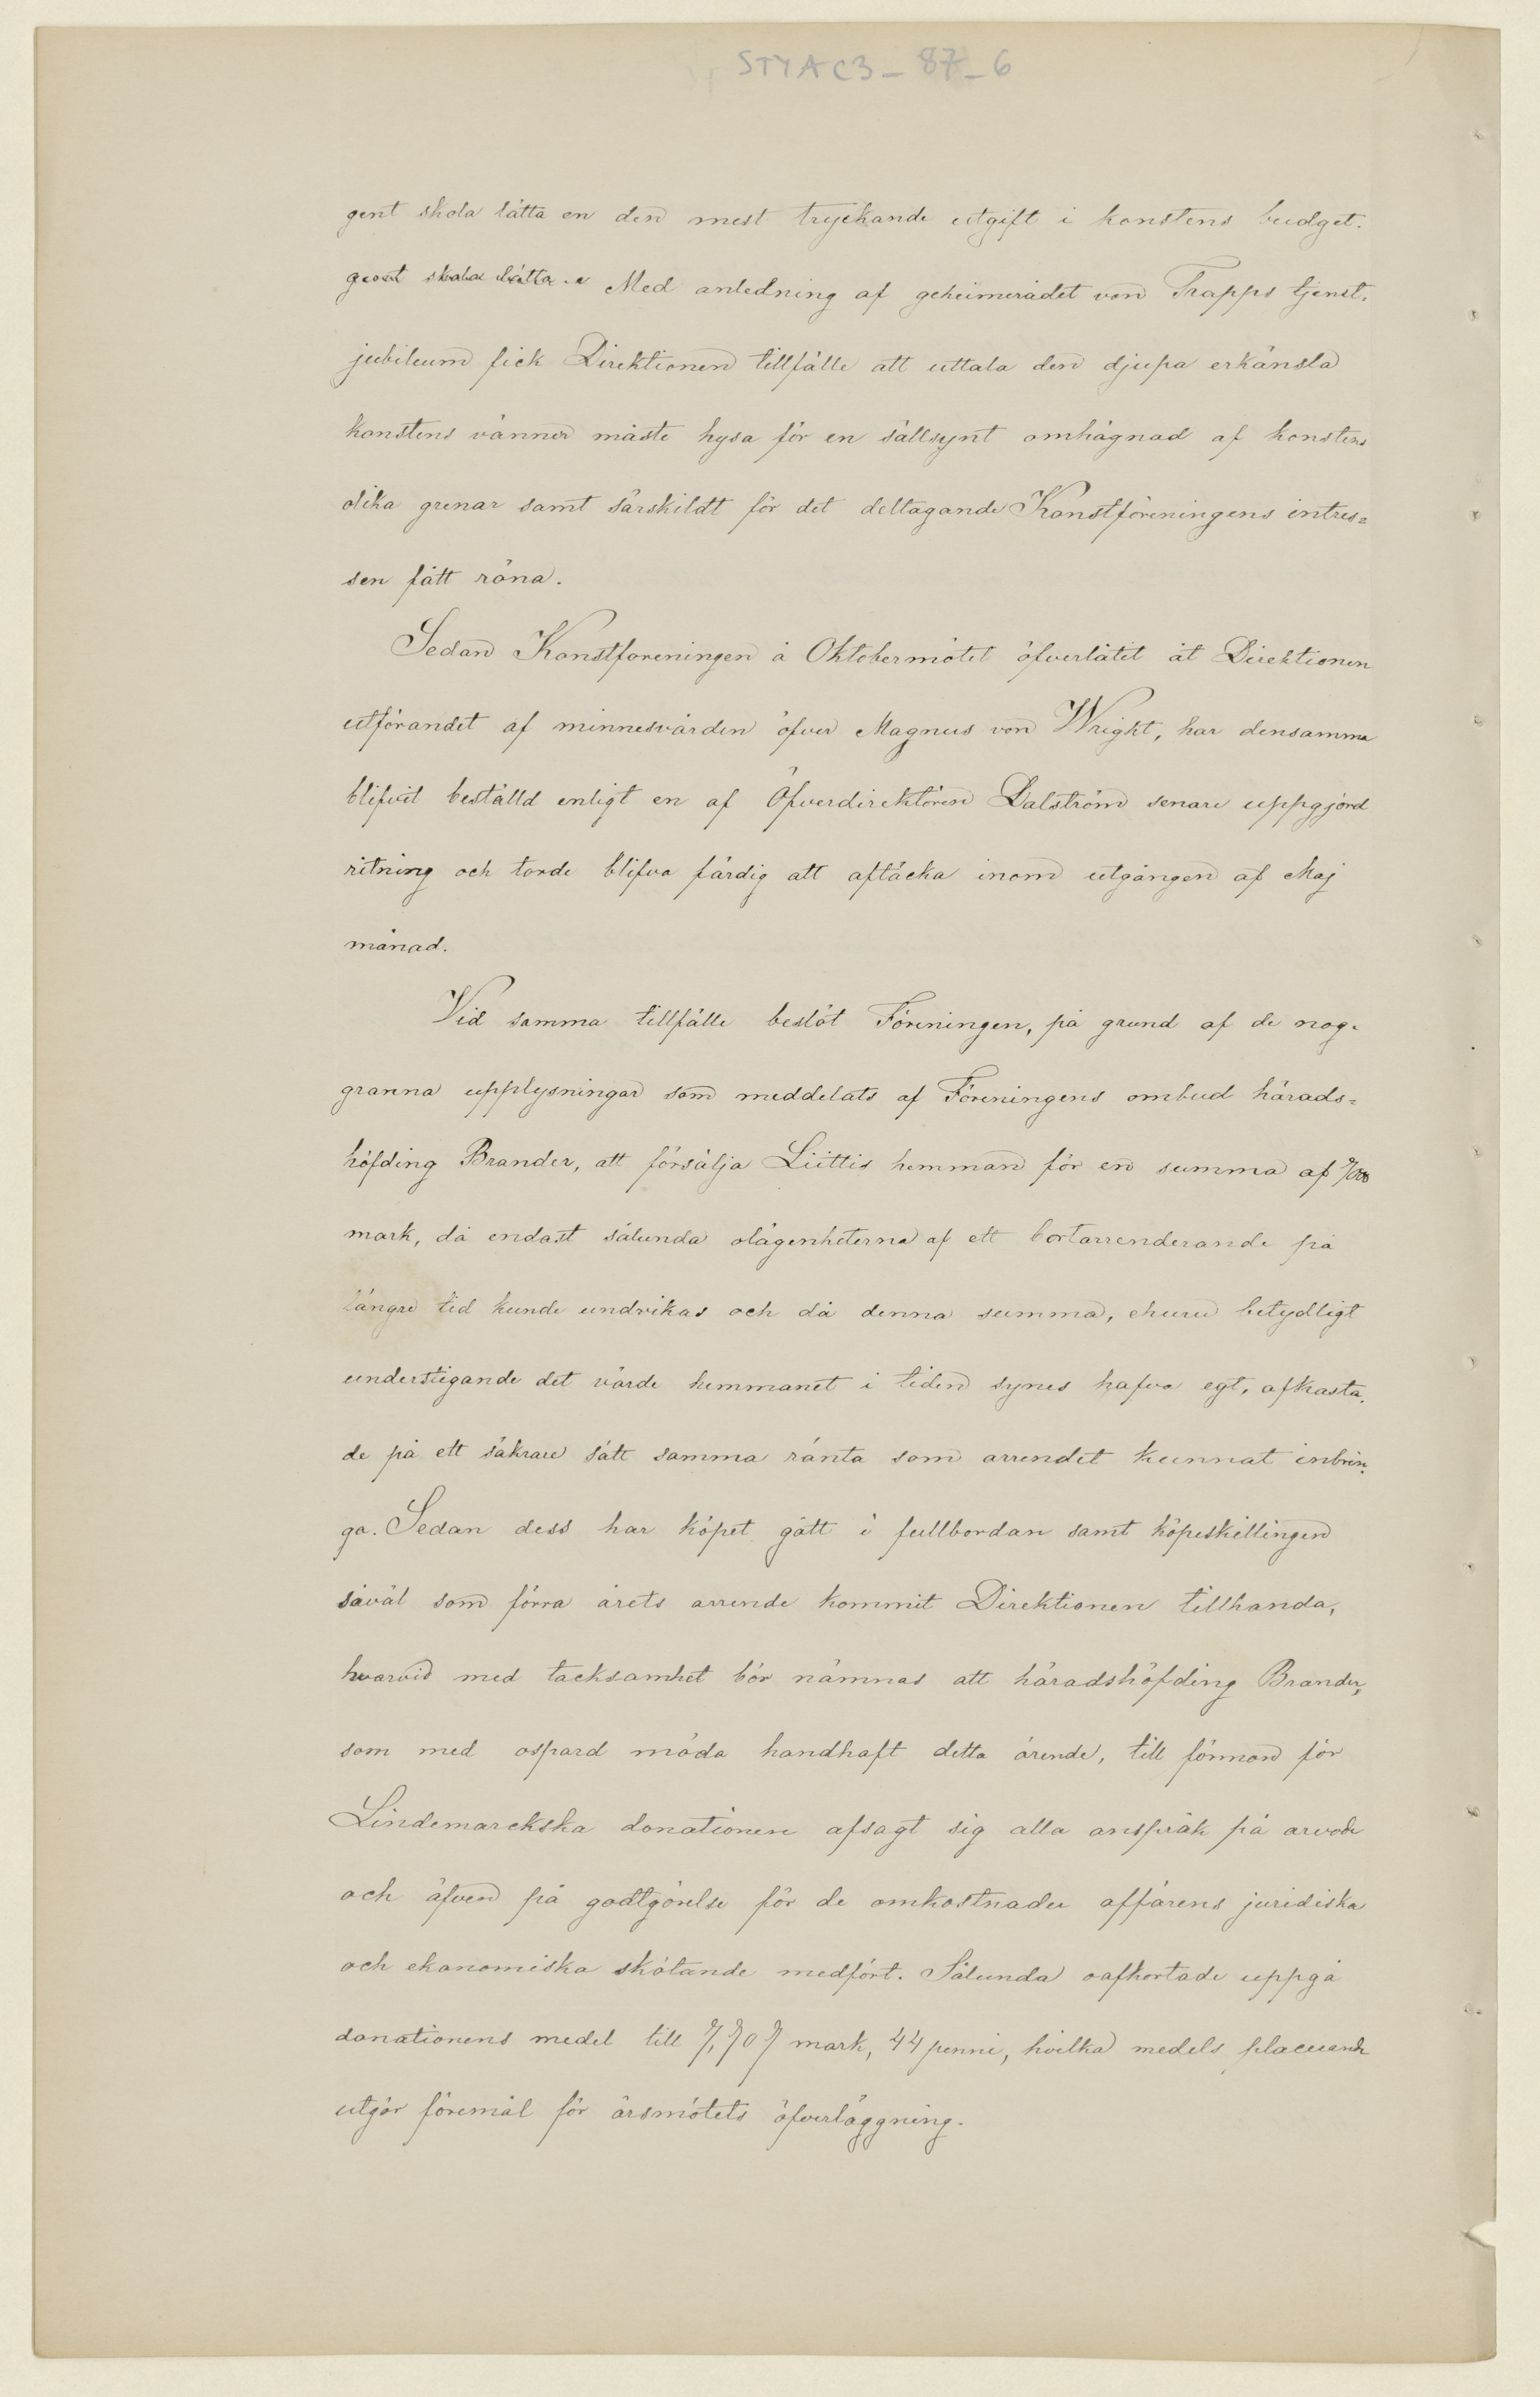 STYA C3 - 87 - 6
gent skola lätta en den mest tryckande utgift i konstens budget.
gent skola lätta Med anledning af geheimerådet von Trapps tjenst-
jubileum fick Direktionen tillfälle att uttala den djupa erkänsla
konstens vänner måste hysa för en sällsynt omhägnad af konstens
olika grenar samt särskildt för det deltagande Konstföreningens intres=
sen fått röna.
Sedan Konstforeningen å Oktobermötet öfverlåtit åt Direktionen
utförandet af minnesvården öfver Magnus von Wright, har densamma
blifvit beställd enligt en af Öfverdirektören Dalström senare uppgjord
ritning och torde blifva färdig att aftäcka inom utgången af Maj
månad.
Vid samma tillfälle beslöt Föreningen, på grund af de nog-
granna upplysningar som meddelats af Föreningens ombud härads=
höfding Brander, att försälja Liittis hemman för en summa af
mark, då endast sålunda olägenheterna af ett bortarrenderande på
längre tid kunde undvikas och då denna summa, ehuru betydligt
understigande det värde hemmanet i tiden synes hafva egt, afkasta-
de på ett säkrare sätt samma ränta som arrendet kunnat inbrin-
ga. Sedan dess har köpet gått i fullbordan samt köpeskillingen
såväl som förra årets arrende kommit Direktionen tillhanda,
hvarvid med tacksamhet bör nämnas att häradshöfding Brander,
som med ospard möda handhaft detta ärende, till förmon för
Lindemarckska donationen afsagt sig alla anspråk på arvode
och äfven på godtgörelse för de omkostnader affärens juridiska
och ekonomiska skötande medfört. Sålunda oafkortade uppgå
donationens medel till 7,707 mark, 44 penni, hvilka medels placerande
utgör föremål för årsmötets öfverläggning.